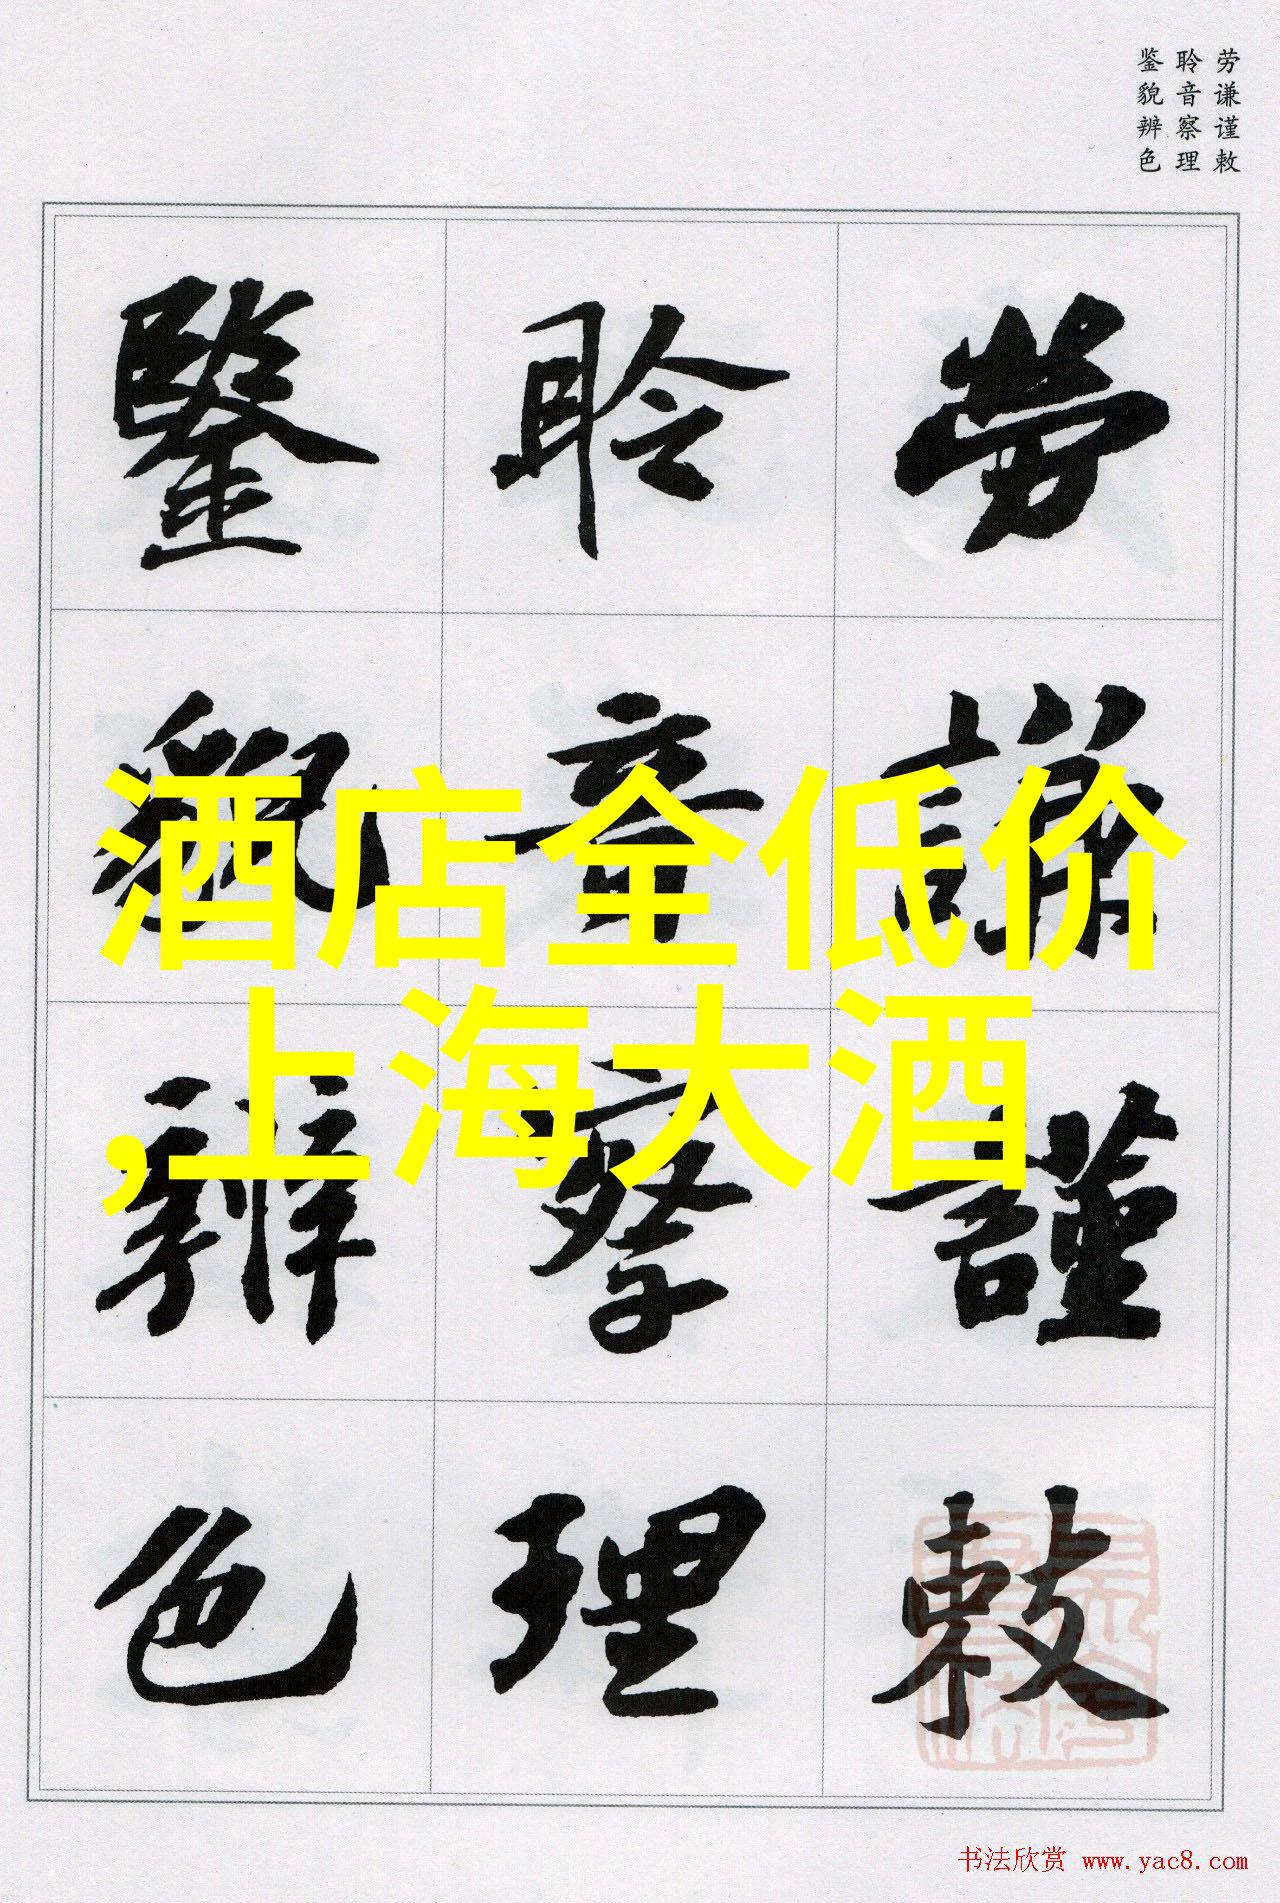 劳谦谨敕
聆音察理
鉴貌辨色
劳謙謹敕
聆音察理
鑒貌辨色
酒店全低价
,上海大酒
书法欣赏 www.yac8.com